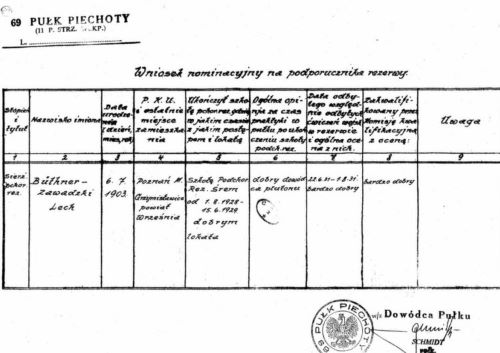 69 PUŁK PIECHOTY
(11 P. STRZ. KP.)
L.
Wniosek nominacyjny na podporucznika rezerwy.
Stopień i tytuł
Nazwisko i imiona
Data urodzenia (dzień, mies, rok)
P. K. U. i ostatnie miejsce zamieszkania
Ukończył szkołę pchor. rez. gdzie, w jakim czasie z jakim postępem i lokatą
Ogólna opinja za czas praktyki w pułku po ukończeniu szkoły podch. rez.
Data odbytego względnie odbytych ćwiczeń wojsk. w rezerwie i ogólna ocena z nich.
Zakwalifikowany przez Komisję kwalifikacyjną z oceną:
Uwaga
1 2 3 4 5 6 7 8 9
Sierż. pchor. rez.
Büthner-Zawadzki Lech
6. 7. 1903.
Poznań M.
powiat Września
Szkołę Podchor. Rez. Śrem od 1.8.1928- 15.6.1929 dobrym lokata
dobry dowódca plutonu
22.6.31-1.8.31. bardzo dobry
bardzo dobry
69 PUŁK PIECHOTY
w/z Dowódca Pułku
SCHMIDT